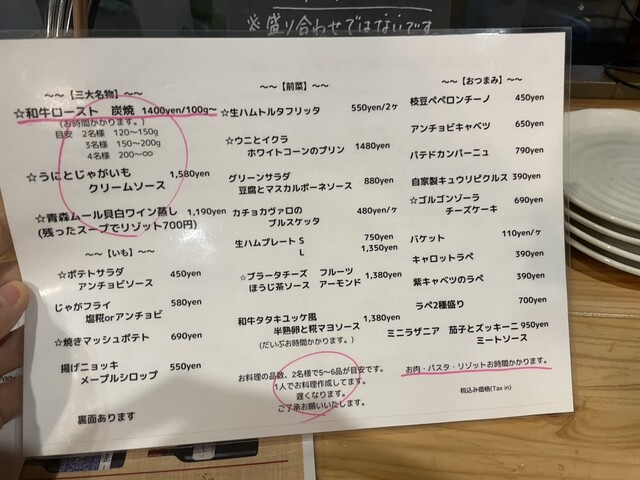 ※盛り合わせではないです
~~【三大名物】~~
☆和牛ロースト 炭焼 1400yen/100g~
(お時間かかります。)
目安 2名様 120~150g
3名様 150~200g
4名様 200~∞
☆うにとじゃがいも
クリームソース 1,580yen
☆青森ムール貝白ワイン蒸し 1,190yen
(残ったスープでリゾット700円)
~~【いも】~~
☆ポテトサラダ
アンチョビソース 450yen
じゃがフライ
塩糀orアンチョビ 580yen
☆焼きマッシュポテト 690yen
揚げニョッキ
メープルシロップ 550yen
裏面あります
~~【前菜】~~
☆生ハムトルタフリッタ 550yen/2ヶ
☆ウニとイクラ
ホワイトコーンのプリン 1480yen
グリーンサラダ
豆腐とマスカルポーネソース 880yen
カチョカヴァロの
ブルスケッタ 480yen/ヶ
生ハムプレート S 750yen
L 1,350yen
☆ブラータチーズ フルーツ
ほうじ茶ソース アーモンド 1,380yen
和牛タタキユッケ風
半熟卵と糀マヨソース 1,380yen
(だいぶお時間かかります。)
お料理の品数、2名様で5~6品が目安です。
1人でお料理作成してます。
遅くなります。
ご了承お願いいたします。
~~【おつまみ】~~
枝豆ペペロンチーノ 450yen
アンチョビキャベツ 650yen
パテドカンパーニュ 790yen
自家製キュウリピクルス 390yen
☆ゴルゴンゾーラ
チーズケーキ 690yen
バケット 110yen/ヶ
キャロットラペ 390yen
紫キャベツのラペ 390yen
ラペ2種盛り 700yen
ミニラザニア 茄子とズッキーニ 950yen
ミートソース
お肉・パスタ・リゾットお時間かかります。
税込み価格(Tax in)